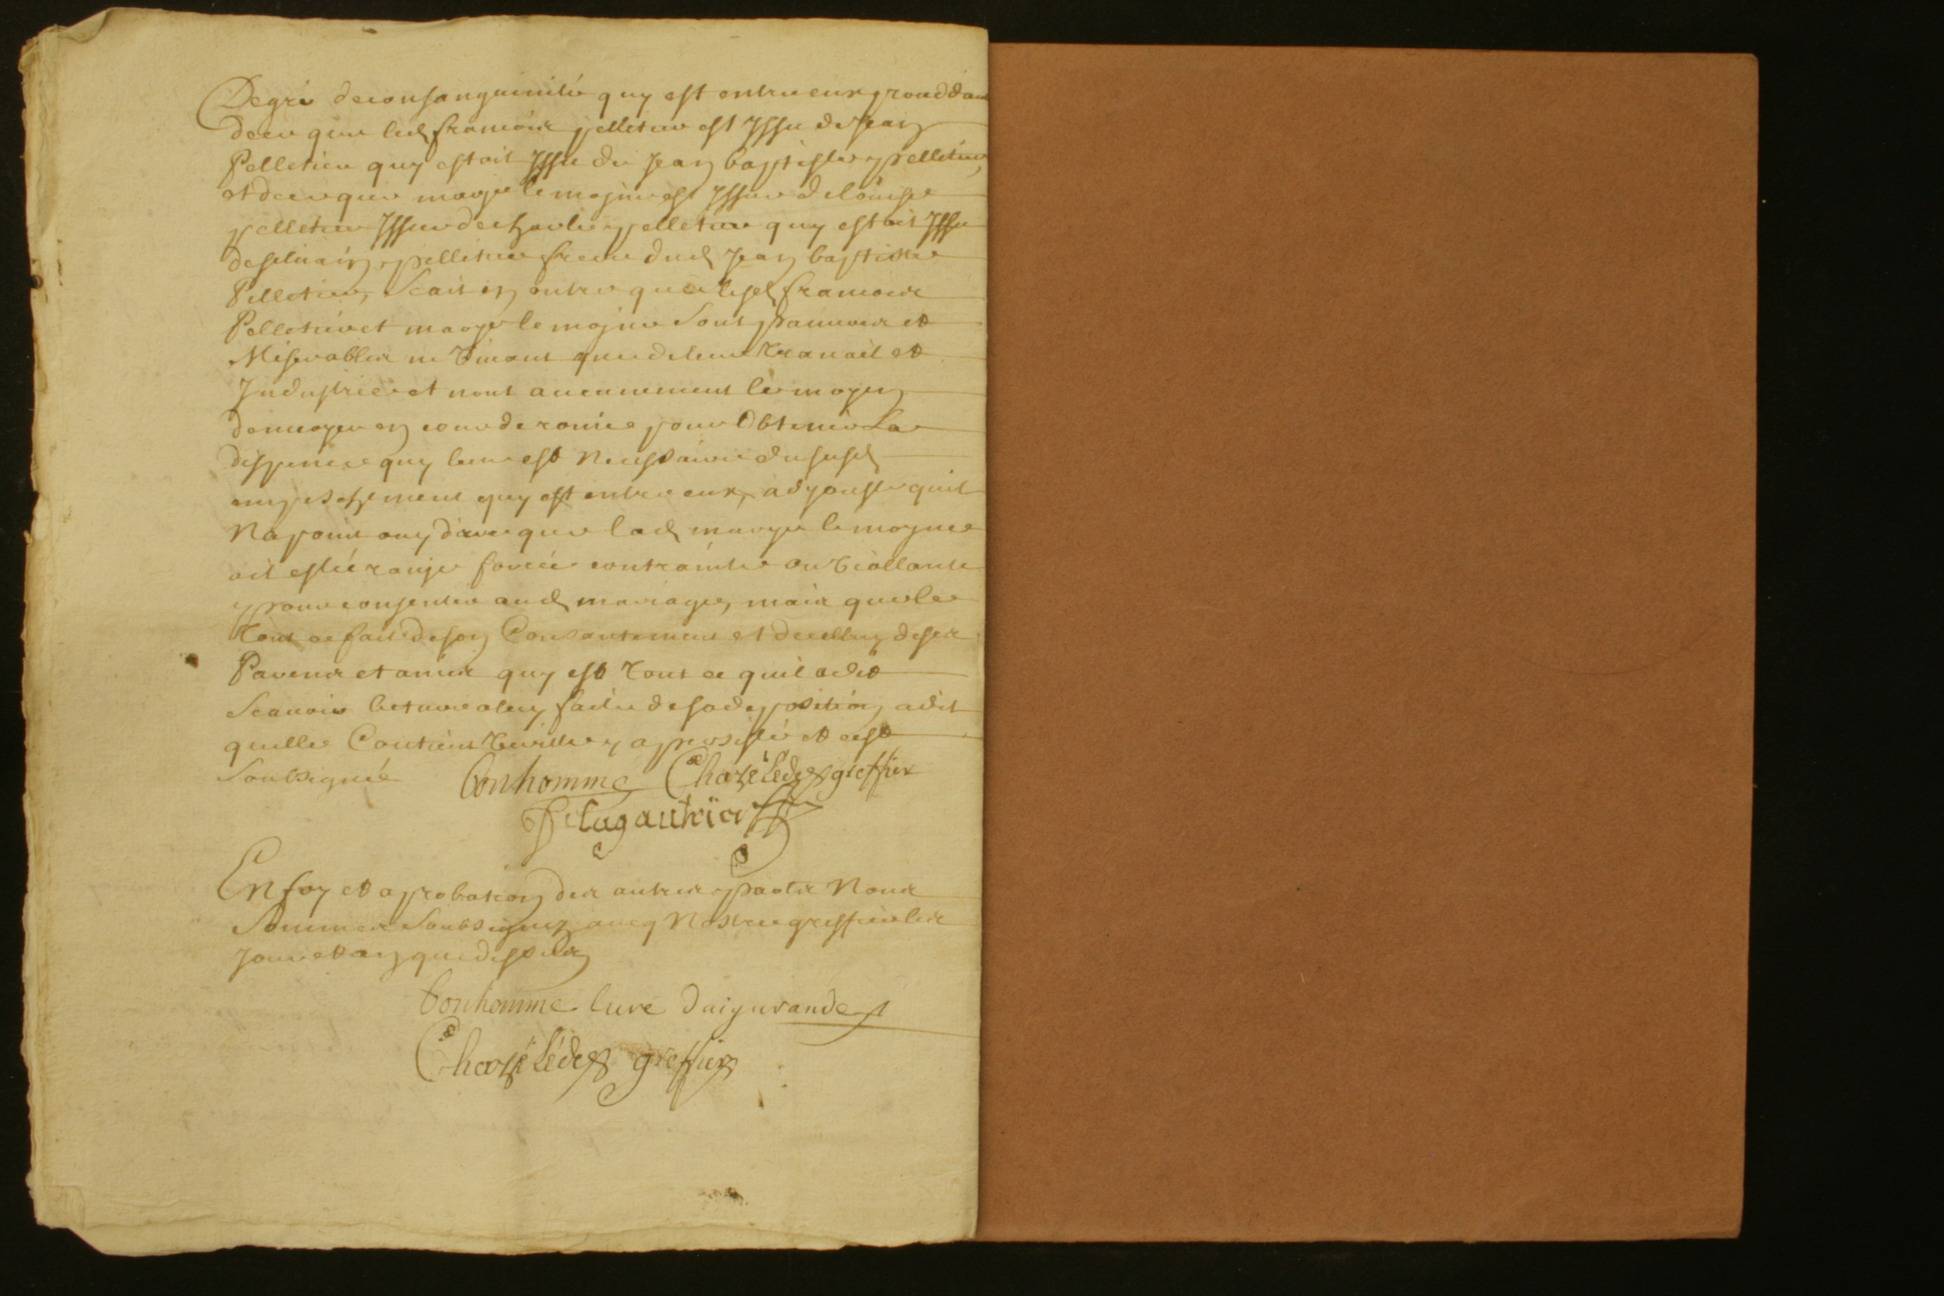 Degré deconsanguinitée quy est entre eux provenant
dece que led françois pelletier est Yssu de Jean
Pelletier quy estoit Yssu de Jean baptiste pelletier,
et dece que marye le mojne est Yssue de louise
pelletier Yssue de charle pelletier quy estoit Yssu
de silvain pelletier frere dud Jean baptiste
Pelletier, Scait en outre que lesd francois
Pelletier et marye le mojne sont pauvres et
Miserables ne Vivant que de leur travail et
Industrie et nont aucunement le moyen
denvoyer en cour de rome pour Obtenir La
dispence quy leur est Necessaire du susd
empeschement quy est entre eux, adjouste quil
Na point ouy dire que lad marye le moyne
ait estée forcée contrainte ou viollante
pour consentir aud mariage, mais que le
tout ce fait de son Consantement et de celluy de ses
Parens et amis quy est tout ce quil a dit
Scavoir lecture a luy faite de sa deposition a dit
quelle Contient veritté y a persisté et cest
Soubsigné Bonhomme greffier
gautier
En foy et aprobation des autres parts Nous
Sommes Soubsignez avecq Nostre greffier les
Jour et an que dessus
bonhomme Curé daigurande
greffier